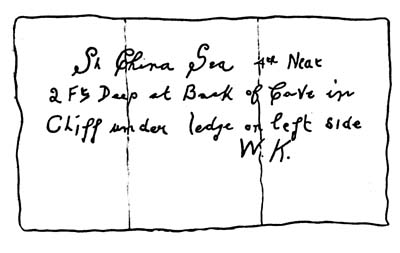 Sh China Sea 4th Near
2 Ft Deep at Back of Cave in
Cliff under ledge on left side
W. K.